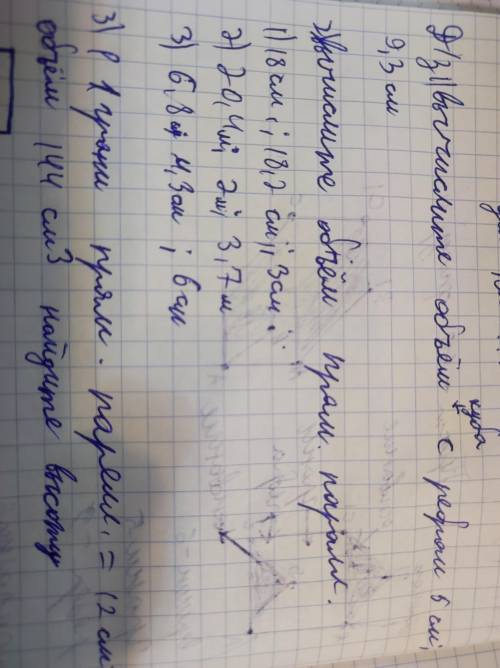 Д/з 1) вычислите объём куба с ребром 5 см,
9,3 см
2) Вычислите объём прям. паралл.
1) 18 см; 18,2 см; 3 см;
2) 20,4 м; 2 м; 3,7 м
3) 6,8 4,3 см; 6 см
3) P 1 грани прям. паралл. = 12 см
объём 144 см3 найдите высоту